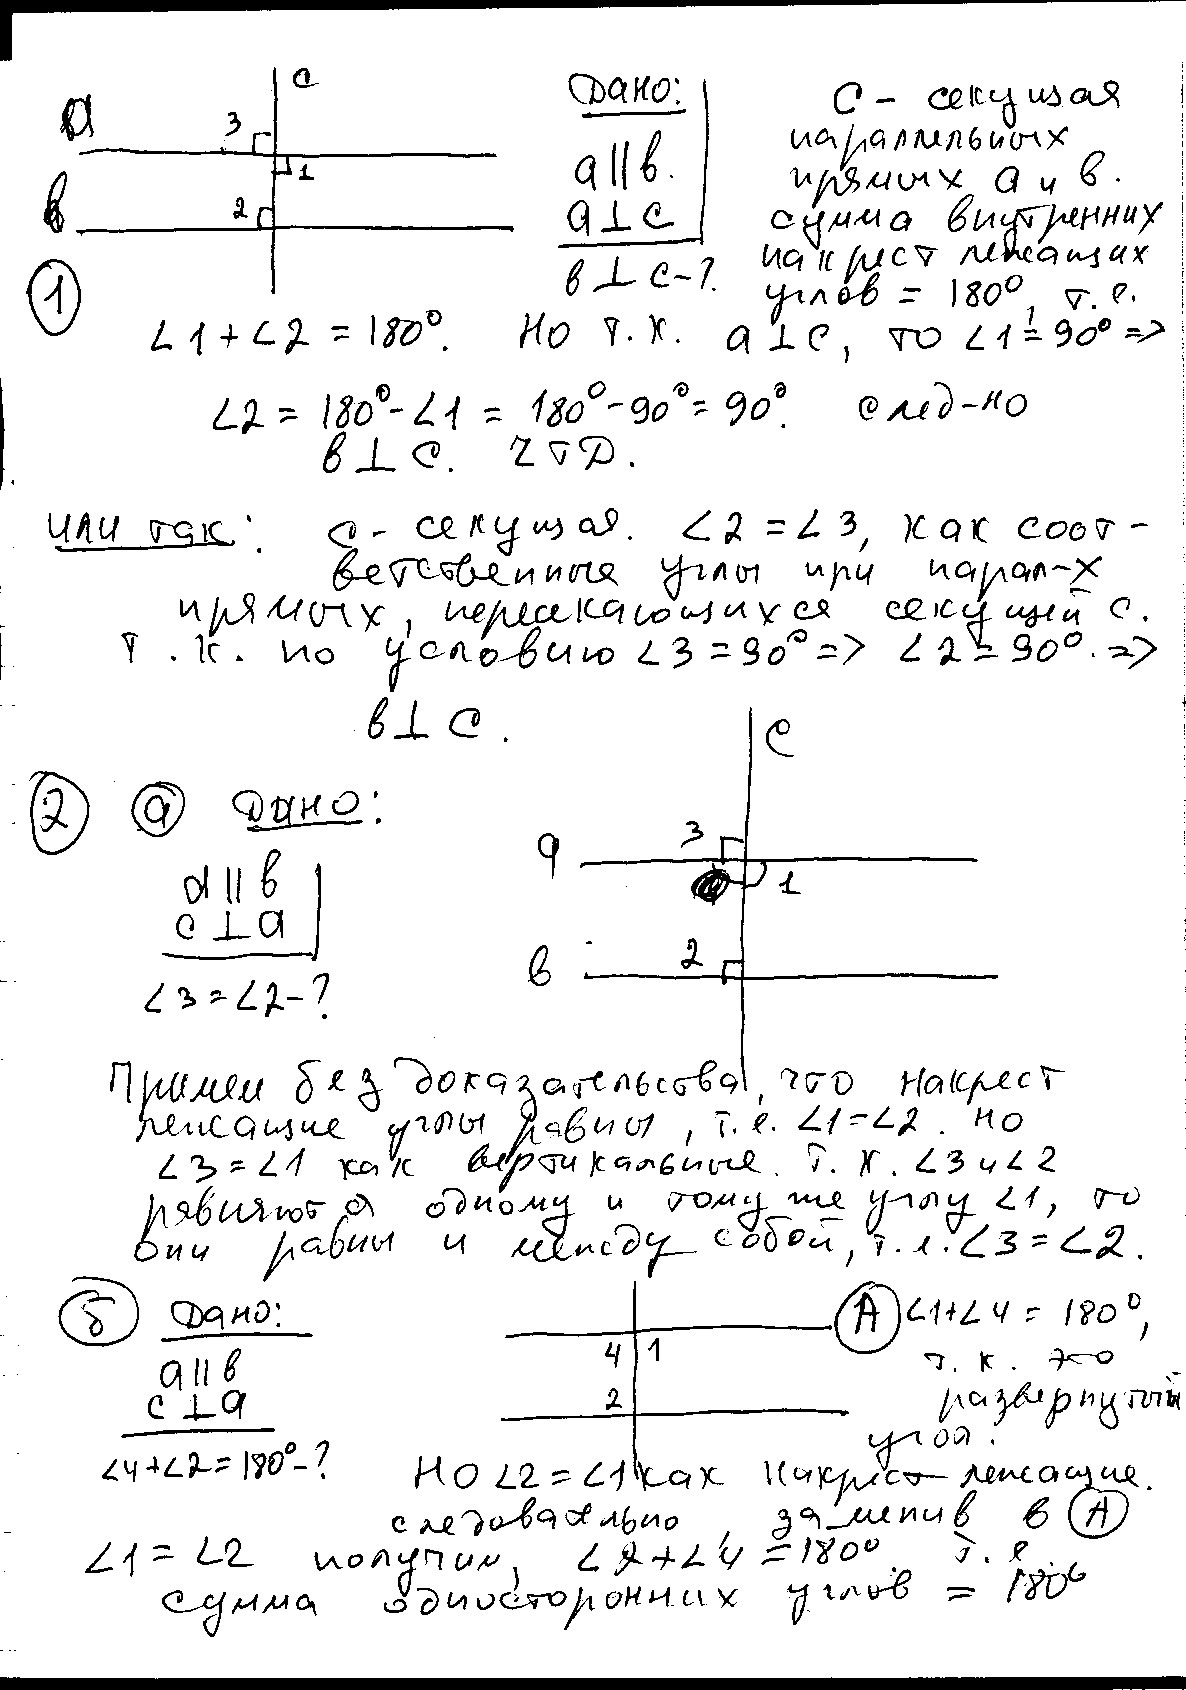 c
а
3
1
в
2
Дано:
a || в.
a ⊥ c
в ⊥ c - ?
c - секущая
параллельных
прямых а и в.
сумма внутренних
накрест лежащих
углов = 180°, т.е.
①
∠1 + ∠2 = 180°. Но т.к. a ⊥ c, то ∠1 = 90° =>
∠2 = 180° - ∠1 = 180° - 90° = 90°. след-но
в ⊥ c. ЧТД.
или так: c - секущая. ∠2 = ∠3, как соот-
ветственные углы при парал-х
прямых, пересекающихся секущей c.
Т.к. по условию ∠3 = 90° => ∠2 = 90°. =>
в ⊥ c.
② ⓐ Дано:
a || в
c ⊥ a
∠3 = ∠2 - ?
c
3
а
1
2
в
Примем без доказательства, что накрест
лежащие углы равны, т.е. ∠1 = ∠2. но
∠3 = ∠1 как вертикальные. Т.к. ∠3 и ∠2
равняются одному и тому же углу ∠1, то
они равны и между собой, т.е. ∠3 = ∠2.
б Дано:
a || в
c ⊥ a
∠4 + ∠2 = 180° - ?
4 1
2
Ⓐ ∠1 + ∠4 = 180°,
т.к. это
развернутый
угол.
Но ∠2 = ∠1 как накрест лежащие.
следовательно, заменив в Ⓐ
∠1 = ∠2 получим, ∠2 + ∠4 = 180°. т.е.
сумма односторонних углов = 180°